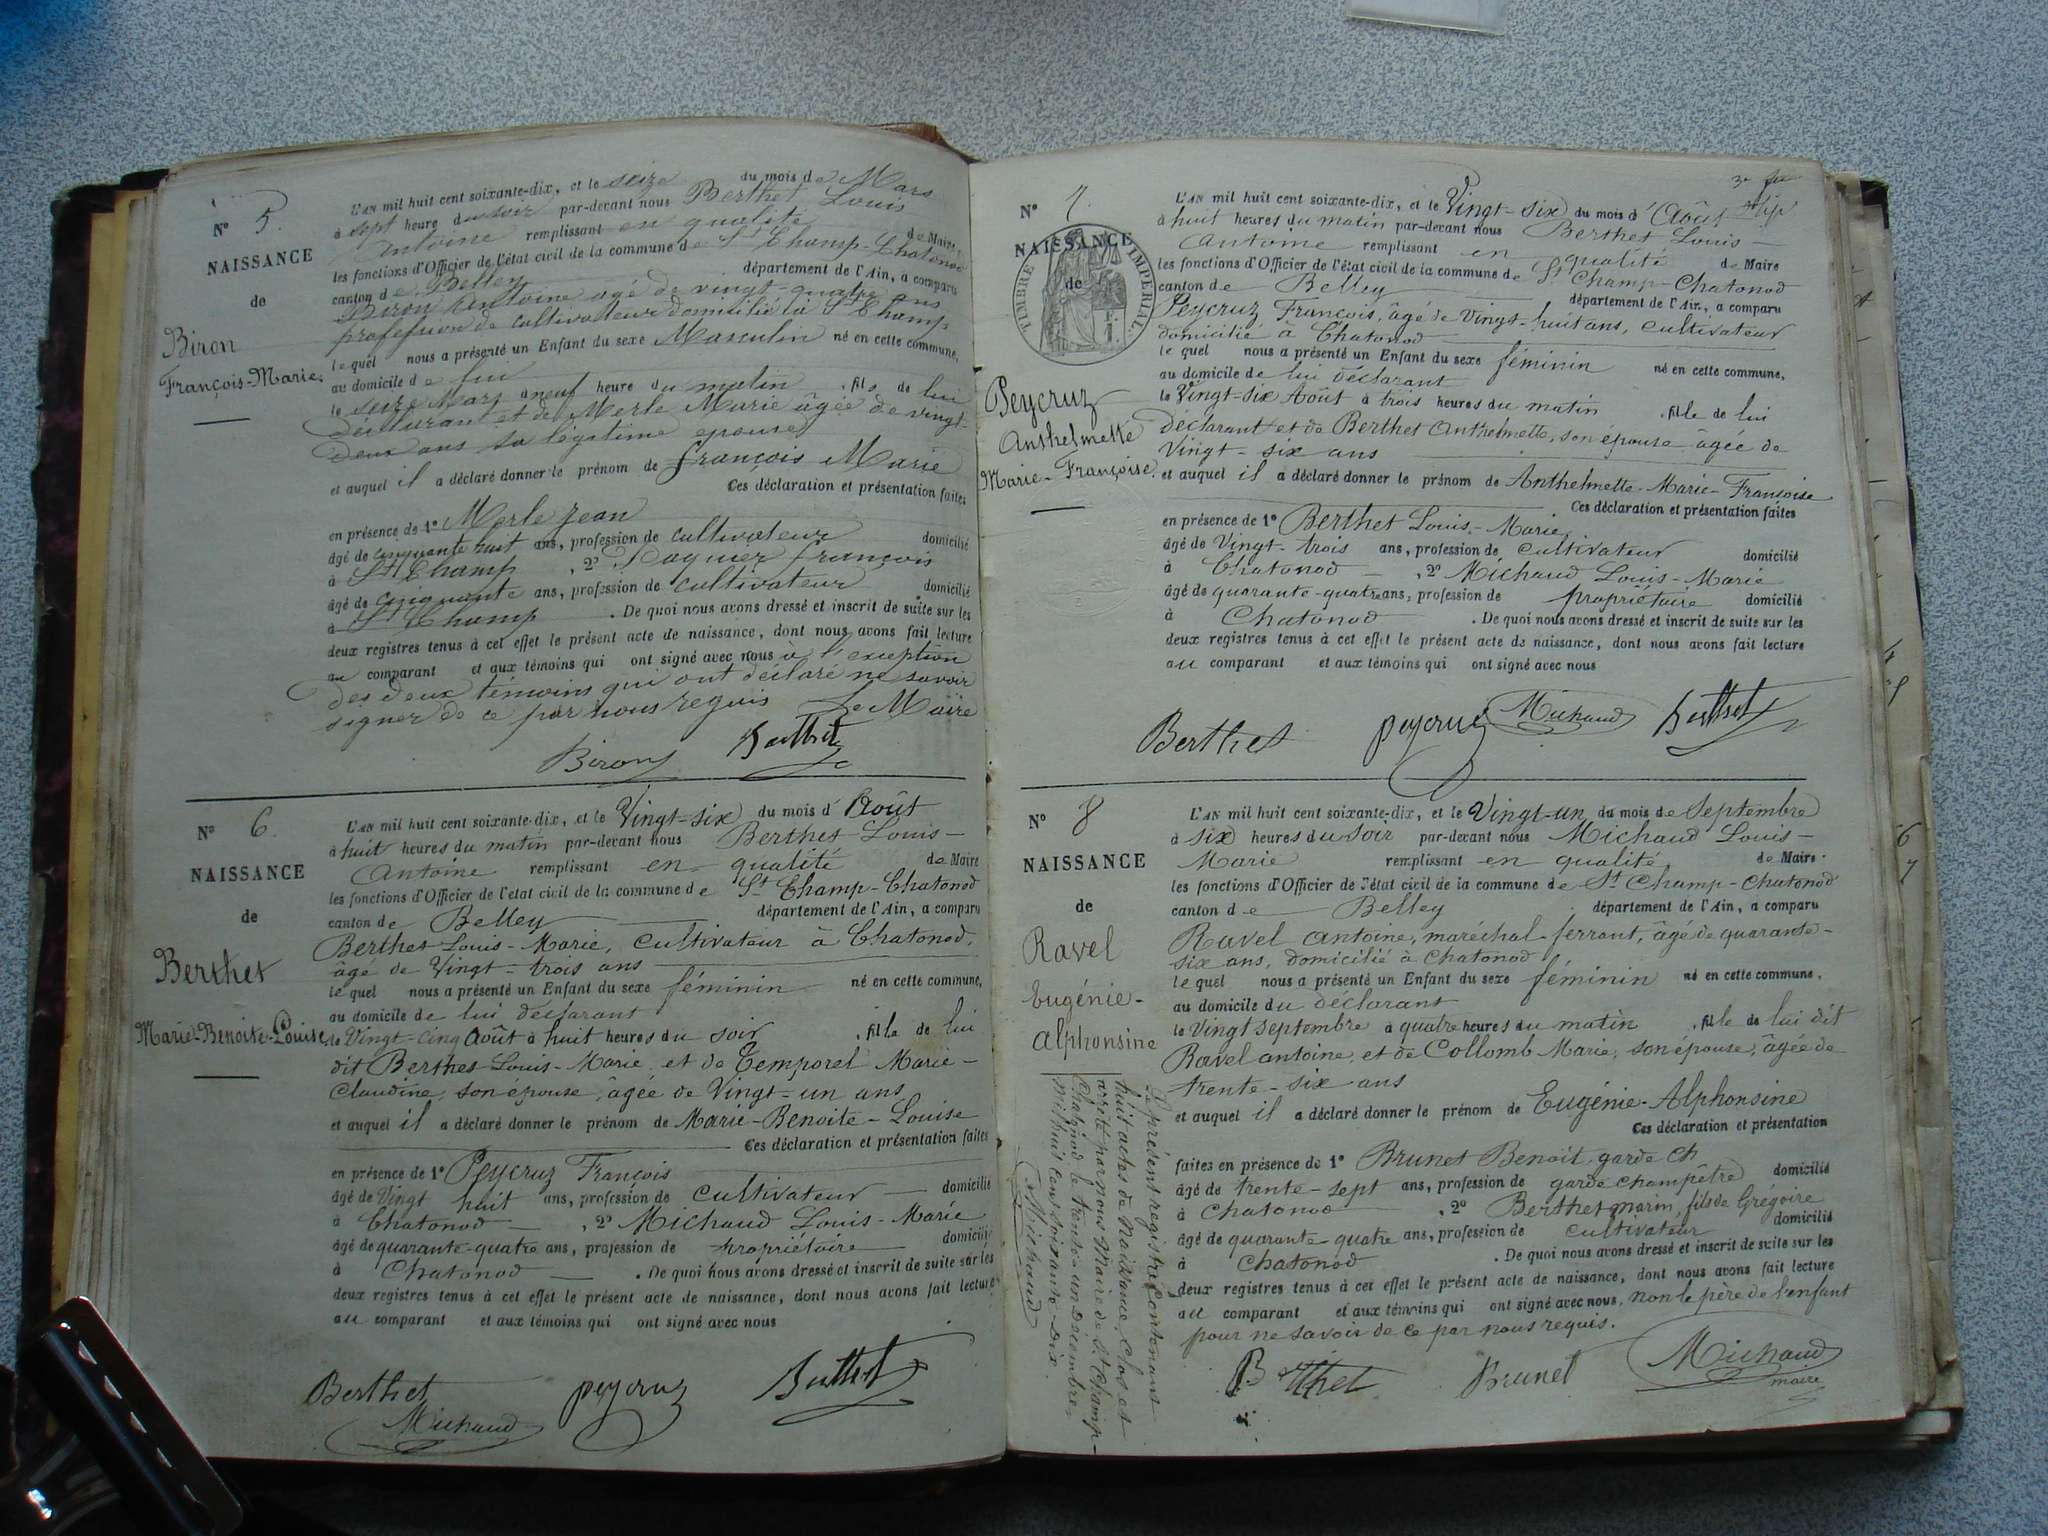 N° 5.
NAISSANCE
de
Biron
François-Marie.
L'AN mil huit cent soixante-dix, et le seize du mois de Mars
à sept heure du soir par-devant nous Berthet Louis
Antoine remplissant en qualité de Maire
les fonctions d'Officier de l'état civil de la commune de St Champ-Chatonod
canton de Belley département de l'Ain, a comparu
Biron Antoine agé de vingt-quatre ans
profession de cultivateur domicilié à St Champ
le quel nous a présenté un Enfant du sexe Masculin né en cette commune,
au domicile de lui
le seize Mars à neuf heure du matin , fils de lui
déclarant et de Merle Marie âgée de vingt-
deux ans sa légitime epouse
et auquel il a déclaré donner le prénom de françois Marie
Ces déclaration et présentation faites
en présence de 1° Merle Jean
âgé de cinquante huit ans, profession de cultivateur domicilié
à St Champ , 2° françois
âgé de cinquante ans, profession de cultivateur domicilié
à St Champ . De quoi nous avons dressé et inscrit de suite sur les
deux registres tenus à cet effet le présent acte de naissance, dont nous avons fait lecture
au comparant et aux témoins qui ont signé avec nous à l'exception
des deux témoins qui ont déclaré ne savoir
signer de ce par nous requis Le Maire
Biron Berthet
N° 6.
NAISSANCE
de
Berthet
Marie-Benoite-Louise
L'AN mil huit cent soixante-dix, et le Vingt-six du mois d'Août
à huit heures du matin par-devant nous Berthet Louis-
Antoine remplissant en qualité de Maire
les fonctions d'Officier de l'état civil de la commune de St Champ-Chatonod
canton de Belley département de l'Ain, a comparu
Berthet Louis-Marie, cultivateur à Chatonod,
âgé de Vingt-trois ans
le quel nous a présenté un Enfant du sexe féminin né en cette commune,
au domicile de lui déclarant
le Vingt-cinq Août à huit heures du soir , fille de lui
dit Berthet Louis-Marie et de Temporel Marie-
Claudine, son épouse, âgée de Vingt-un ans
et auquel il a déclaré donner le prénom de Marie-Benoite-Louise
Ces déclaration et présentation faites
en présence de 1° Peycruz François
âgé de Vingt huit ans, profession de cultivateur domicilié
à Chatonod , 2° Michaud Louis-Marie
âgé de quarante-quatre ans, profession de propriétaire domicilié
à Chatonod . De quoi nous avons dressé et inscrit de suite sur les
deux registres tenus à cet effet le présent acte de naissance, dont nous avons fait lecture
au comparant et aux témoins qui ont signé avec nous
Berthet peycruz Berthet
Michaud
N° 7.
NAISSANCE
de
TIMBRE IMPERIAL
Peycruz
Anthelmette
Marie-Françoise.
L'AN mil huit cent soixante-dix, et le Vingt-six du mois d'Août
à huit heures du matin par-devant nous Berthet Louis-
Antoine remplissant en qualité de Maire
les fonctions d'Officier de l'état civil de la commune de St Champ-Chatonod
canton de Belley département de l'Ain, a comparu
Peycruz François, âgé de Vingt-huit ans, cultivateur
domicilié à Chatonod
le quel nous a présenté un Enfant du sexe féminin né en cette commune,
au domicile de lui déclarant
le Vingt-six Août à trois heures du matin , fille de lui
déclarant et de Berthet Anthelmette, son épouse âgée de
Vingt-six ans
et auquel il a déclaré donner le prénom de Anthelmette-Marie-Françoise
Ces déclaration et présentation faites
en présence de 1° Berthet Louis-Marie
âgé de Vingt-trois ans, profession de cultivateur domicilié
à Chatonod , 2° Michaud Louis-Marie
âgé de quarante-quatre ans, profession de propriétaire domicilié
à Chatonod . De quoi nous avons dressé et inscrit de suite sur les
deux registres tenus à cet effet le présent acte de naissance, dont nous avons fait lecture
au comparant et aux témoins qui ont signé avec nous
Berthet peycruz Michaud Berthet
N° 8
NAISSANCE
de
Ravel
Eugénie-
Alphonsine
L'AN mil huit cent soixante-dix, et le Vingt-un du mois de Septembre
à six heures du soir par-devant nous Michaud Louis-
Marie remplissant en qualité de Maire
les fonctions d'Officier de l'état civil de la commune de St Champ-Chatonod
canton de Belley département de l'Ain, a comparu
Ravel Antoine, maréchal-ferrant, âgé de quarante-
six ans, domicilié à Chatonod
le quel nous a présenté un Enfant du sexe féminin né en cette commune,
au domicile du déclarant
le Vingt septembre à quatre heures du matin , fille de lui dit
Ravel Antoine, et de Collomb Marie, son épouse, âgée de
trente-six ans
et auquel il a déclaré donner le prénom de Eugénie-Alphonsine
Ces déclaration et présentation
faites en présence de 1° Brunet Benoit, garde ch
âgé de trente-sept ans, profession de garde champêtre domicilié
à Chatonod , 2° Berthet marin, fils de Grégoire
âgé de quarante-quatre ans, profession de cultivateur domicilié
à Chatonod . De quoi nous avons dressé et inscrit de suite sur les
deux registres tenus à cet effet le présent acte de naissance, dont nous avons fait lecture
au comparant et aux témoins qui ont signé avec nous, non le père de l'enfant
pour ne savoir de ce par nous requis.
Berthet Brunet Michaud
maire
Le présent registre contenant
huit actes de Naissance, clos et
arrêté par nous Maire de St Champ-
Chatonod le trente-un Décembre,
mil huit cent soixante-dix.
Michaud